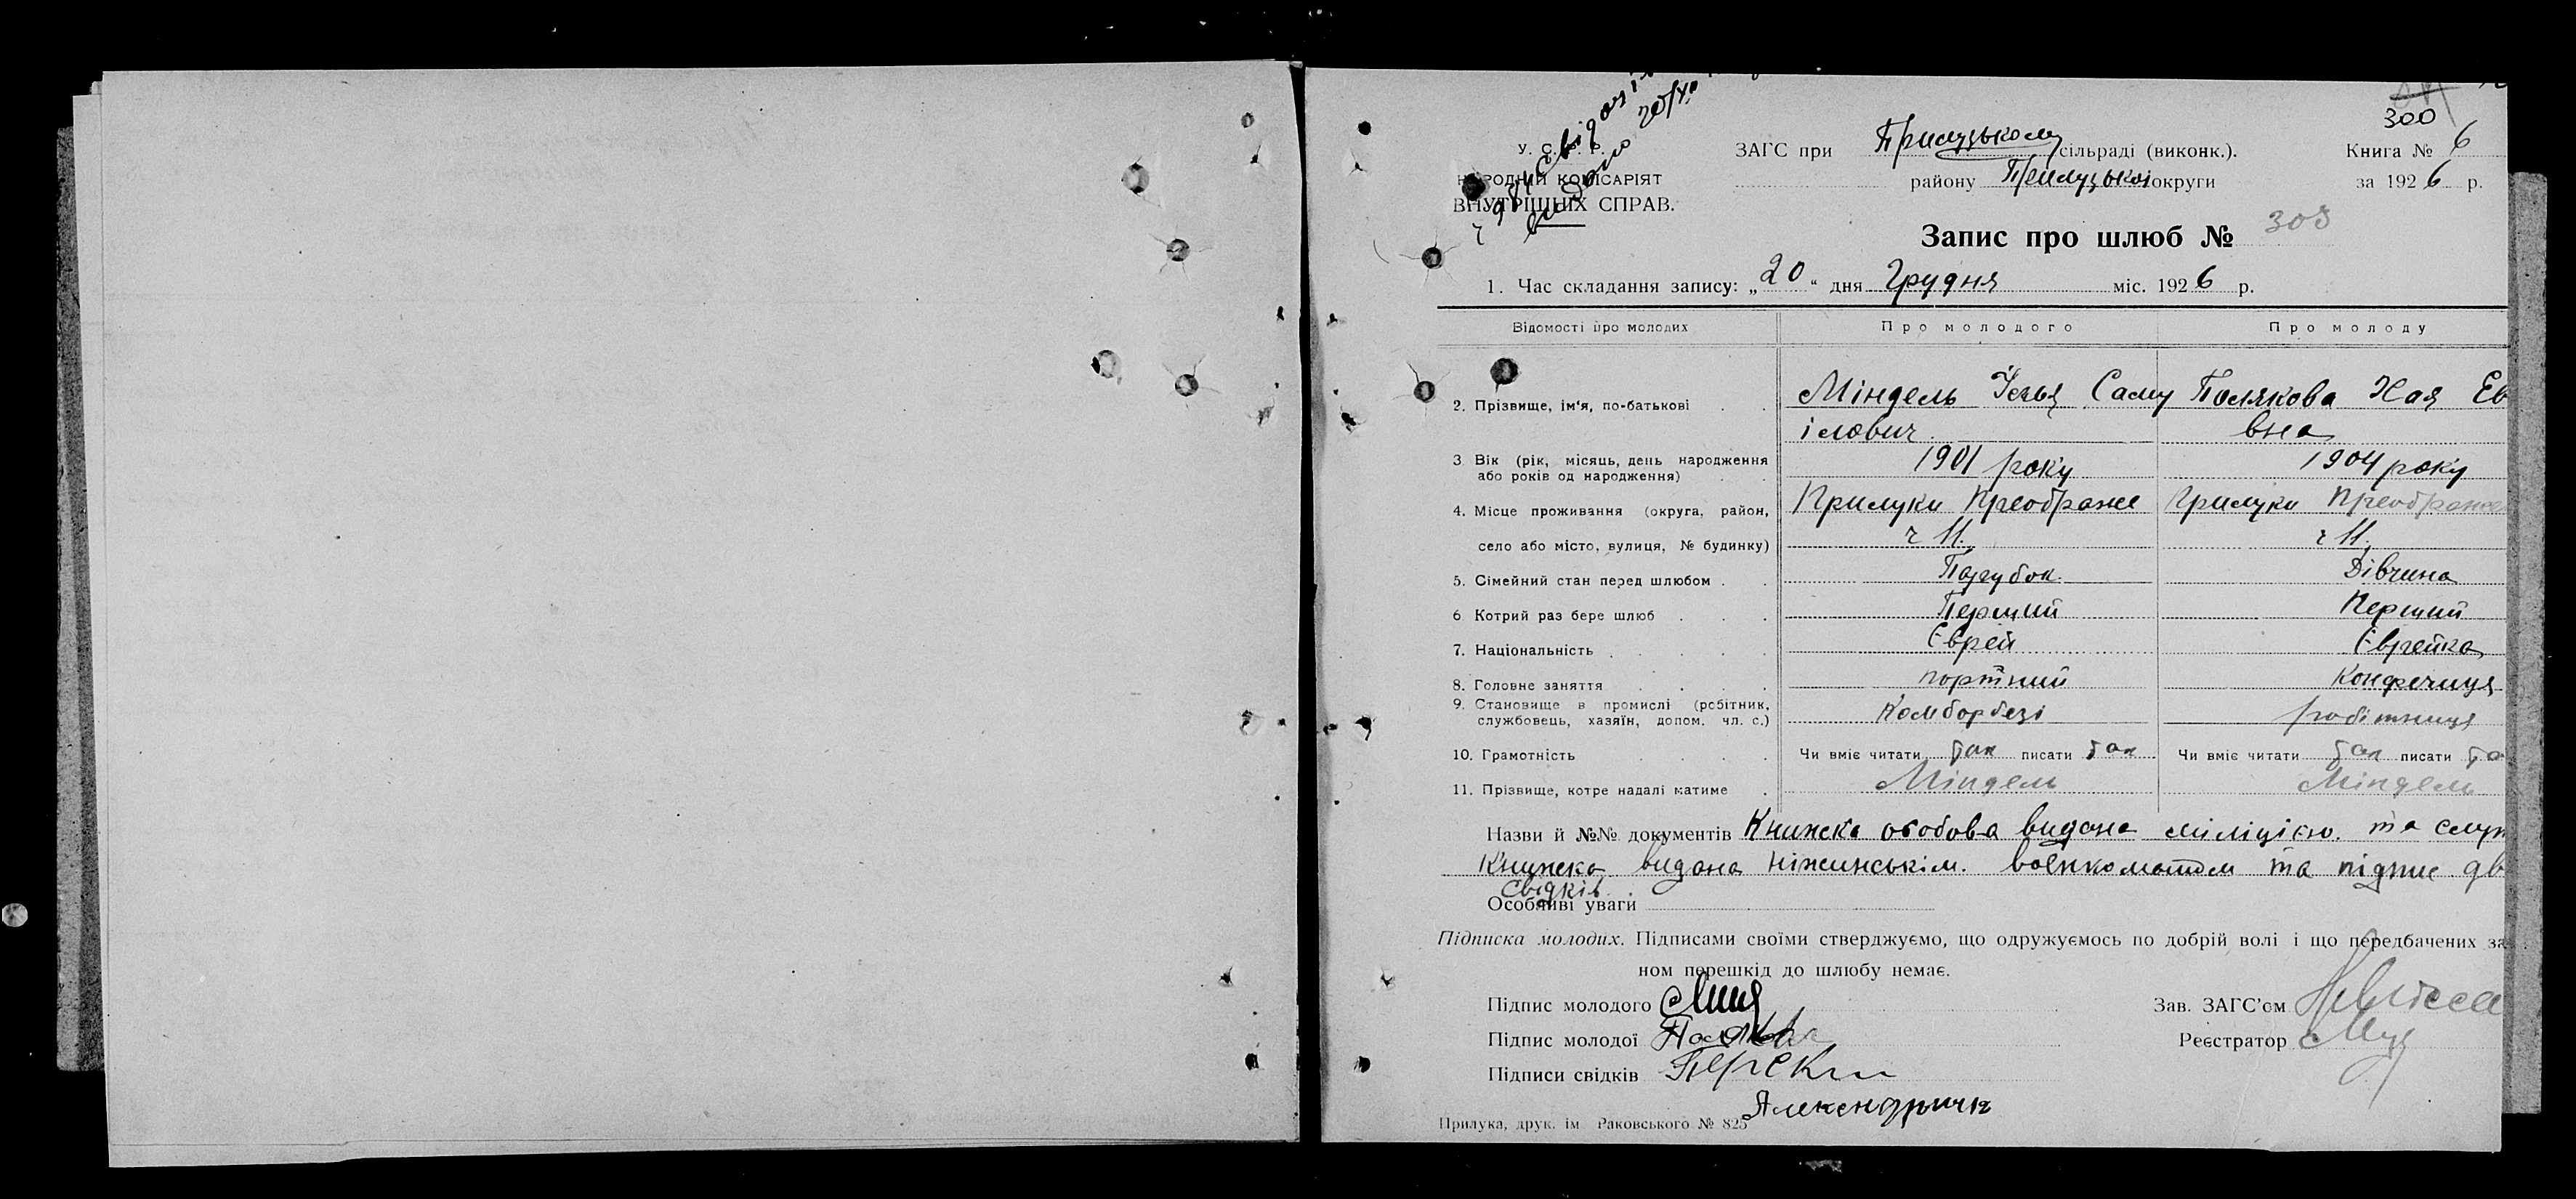 300
У. С. Р. Р.
НАРОДНИЙ КОМІСАРІЯТ
ВНУТРІШНІХ СПРАВ.
видано
ЗАГС при Прилуцькому сільраді (виконк.).
району Прилуцької округи
Книга № 6
за 1926 р.
Запис про шлюб № 303
1. Час складання запису: „20“ дня Грудня міс. 1926 р.
Відомості про молодих Про молодого Про молоду
2. Прізвище, ім'я, по-батькові Міндель Саму Полякова Хая Ев
ілович вна
3. Вік (рік, місяць, день народження
або років од народження) 1901 року 1904 року
4. Місце проживання (округа, район, Прилуки Преображе Прилуки Преображе
село або місто, вулиця, № будинку) ч 11. ч 11.
5. Сімейний стан перед шлюбом Парубок Дівчина
6 Котрий раз бере шлюб Перший Перший
7. Національність Єврей Єврейка
8. Головне заняття портний
9. Становище в промислі (робітник,
службовець, хазяїн, допом. чл. с.) робітниця
10. Грамотність Чи вміє читати так писати так Чи вміє читати так писати та
11. Прізвище, котре надалі матиме Міндель Міндель
Назви й №№ документів Книжка особова видана міліцією. та служ
Книжка видана Ніжинськім. воєнкоматом та підпис дв
свідків.
Особливі уваги
Підписка молодих. Підписами своїми стверджуємо, що одружуємось по добрій волі і що передбачених за
ном перешкід до шлюбу немає.
Підпис молодого
Зав. ЗАГС'ом
Підпис молодої
Реєстратор
Підписи свідків
Прилука, друк. ім Раковського № 825